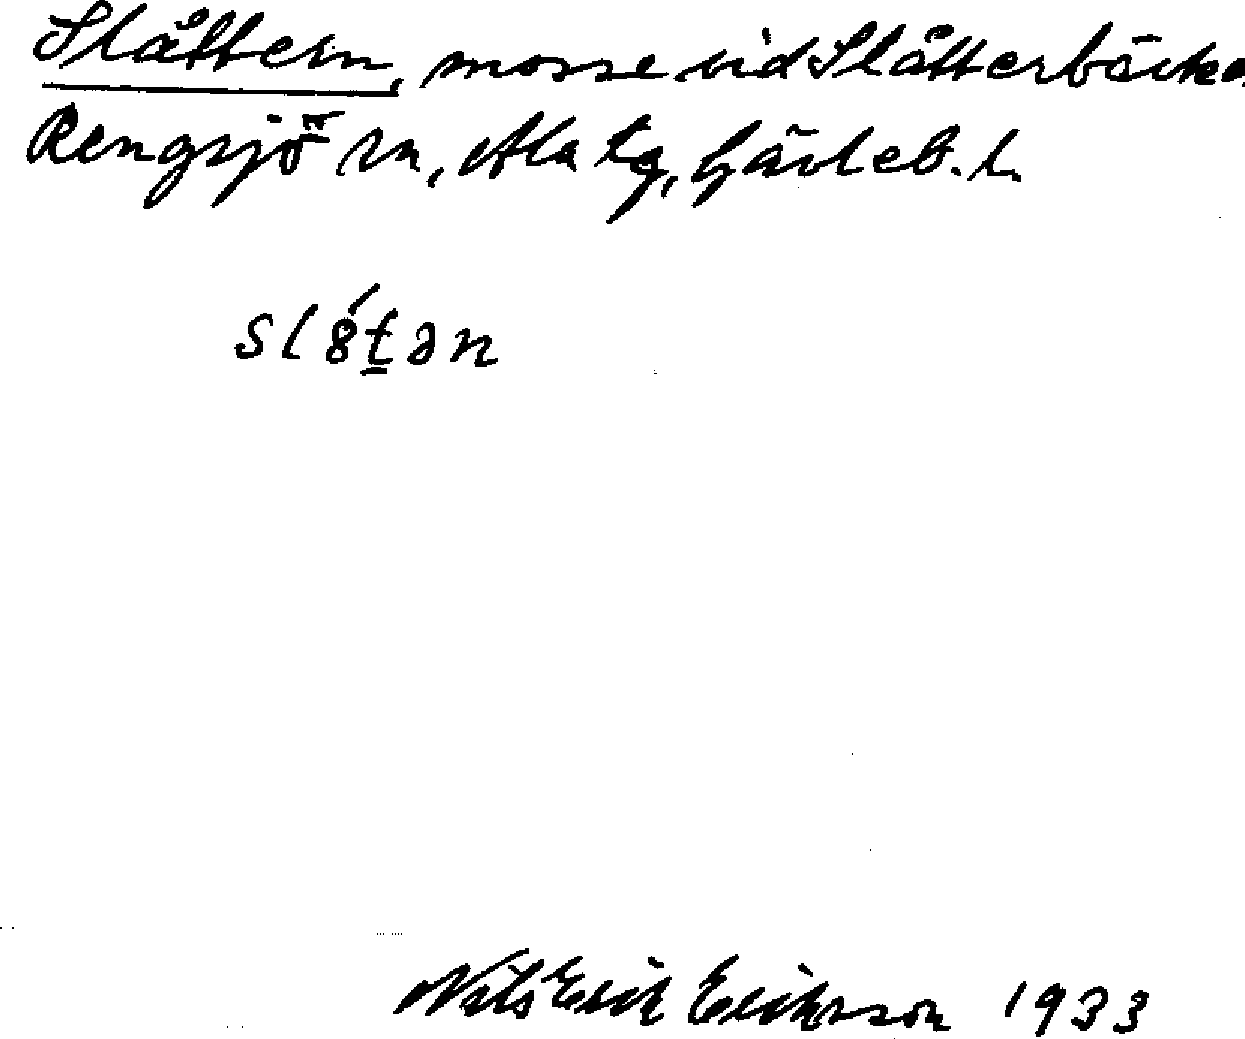 Slåttern, mosse vid Slåtterbäcken
Rengsjö sn, Ala tg, Gävleb. l.
sl8́t̲ən
Nils Erik Eriksson 1933